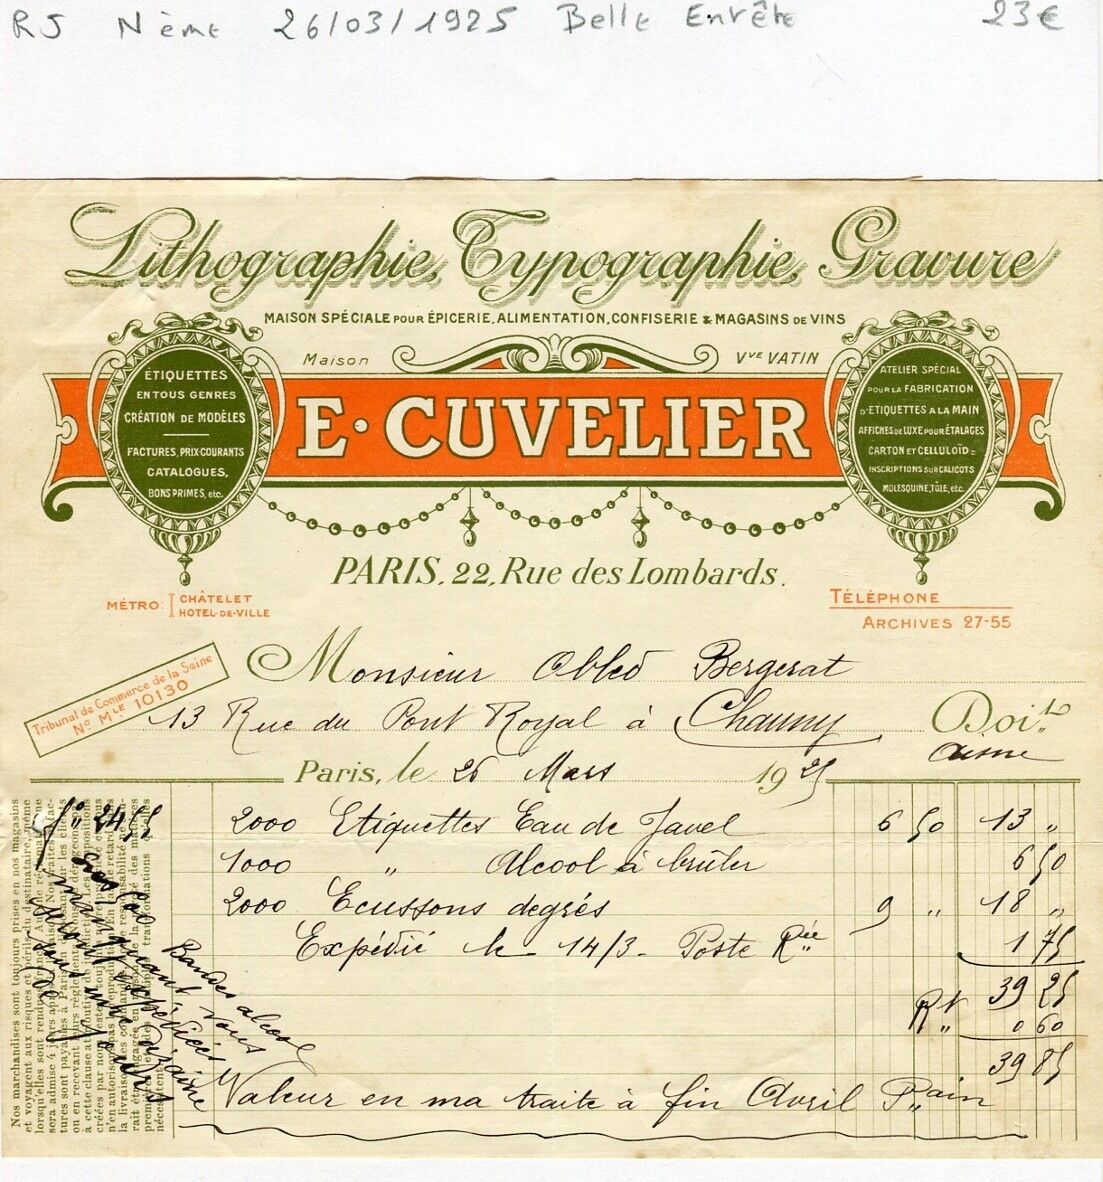 RJ Nème 26/03/1925 Belle Entête 23€
Lithographie, Typographie, Gravure
MAISON SPÉCIALE POUR ÉPICERIE, ALIMENTATION, CONFISERIE & MAGASINS DE VINS
Maison Vve VATIN
E. CUVELIER
ÉTIQUETTES
EN TOUS GENRES
CRÉATION DE MODÈLES
FACTURES, PRIX-COURANTS
CATALOGUES,
BONS PRIMES, etc.
ATELIER SPÉCIAL
POUR LA FABRICATION
D'ETIQUETTES A LA MAIN
AFFICHES DE LUXE POUR ÉTALAGES
CARTON ET CELLULOÏD =
INSCRIPTIONS SUR CALICOTS
MOLESQUINE, TÔLE, etc.
PARIS, 22, Rue des Lombards.
MÉTRO: CHÂTELET
HOTEL-DE-VILLE
TÉLÉPHONE
ARCHIVES 27-55
Tribunal de Commerce de la Seine
No MLE 10130
Monsieur Obled Bergerat
13 Rue du Pont Royal à Chauny Doit
Aisne
Paris, le 26 Mars 1925
2000 Etiquettes Eau de Javel 6 50 13 "
1000 " Alcool à brûler 6 50
2000 Ecussons degrés 9 " 18 "
Expédié le 14/3 Poste Rée 1 75
39 25
Rt " 0 60
39 85
Valeur en ma traite à fin Avril Pain
Nos marchandises sont toujours prises en nos magasins
et voyagent aux risques et périls du destinataire, même
lorsqu'elles sont rendues
fo 2455
Bandes alcool
vous
expédiées
dizaine